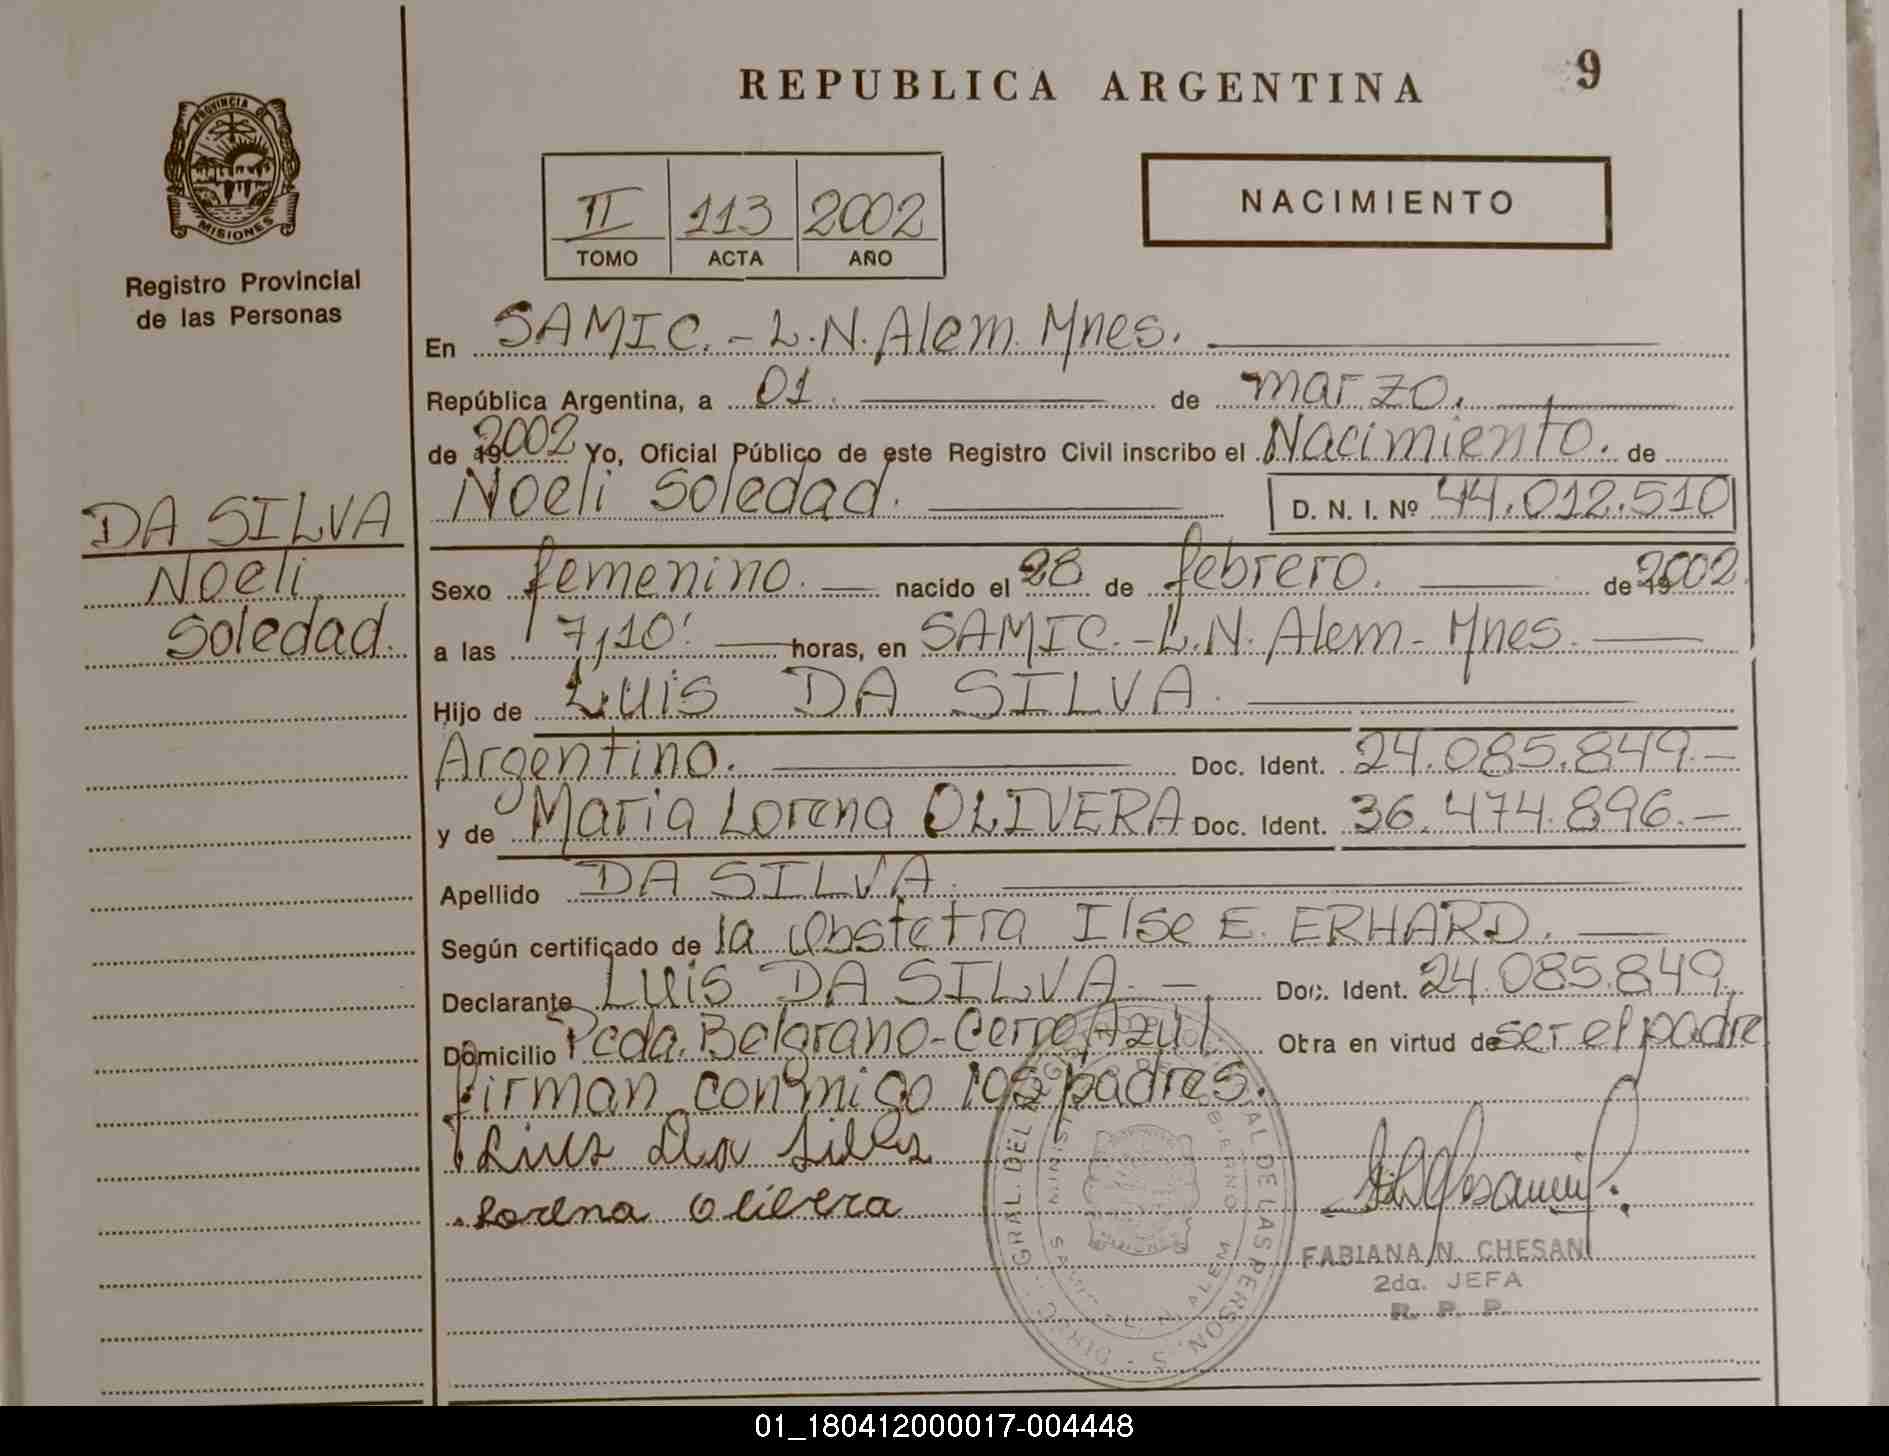 REPUBLICA ARGENTINA 9
PROVINCIA DE
MISIONES
Registro Provincial
de las Personas
NACIMIENTO
II 113 2002
TOMO ACTA AÑO
En SAMIC.-L.N.Alem. Mnes.
República Argentina, a 01. de marzo.
de 19 2002 Yo, Oficial Público de este Registro Civil inscribo el Nacimiento. de
Noeli Soledad. D. N. I. Nº 44.012.510
DA SILVA
Noeli
Soledad.
Sexo femenino. nacido el 28 de febrero. de 19 2002.
a las 7,10' horas, en SAMIC.-L.N. Alem- Mnes.
Hijo de Luis DA SILVA.
Argentino. Doc. Ident. 24.085.849.-
y de Maria Lorena OLIVERA Doc. Ident. 36.474.896.-
Apellido DA SILVA.
Según certificado de la Obstetra Ilse E. ERHARD.
Declarante Luis DA SILVA.- Doc. Ident. 24.085.849.
Domicilio Pcda. Belgrano-Cerro Azul. Obra en virtud de ser el padre
firman conmigo los padres.
Luis Da Silva
Lorena Olivera
FABIANA N. CHESANI
2da. JEFA
R. P. P.
01_180412000017-004448